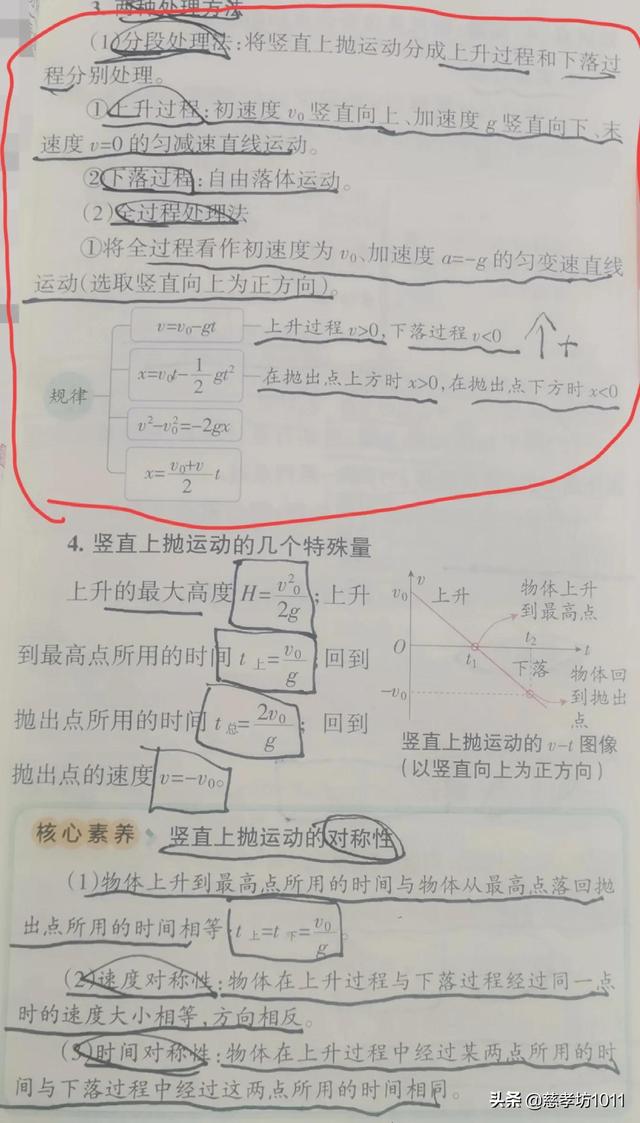 3. 两种处理方法
(1)分段处理法:将竖直上抛运动分成上升过程和下落过
程分别处理。
①上升过程:初速度 v₀ 竖直向上、加速度 g 竖直向下、末
速度 v=0 的匀减速直线运动。
②下落过程:自由落体运动。
(2)全过程处理法
①将全过程看作初速度为 v₀、加速度 a=-g 的匀变速直线
运动(选取竖直向上为正方向)。
规律
v=v₀-gt 上升过程 v>0,下落过程 v<0 ↑+
x=v₀t-1/2 gt² 在抛出点上方时 x>0,在抛出点下方时 x<0
v²-v₀²=-2gx
x=(v₀+v)/2 t
4. 竖直上抛运动的几个特殊量
上升的最大高度 H=v₀²/2g;上升
到最高点所用的时间 t上=v₀/g;回到
抛出点所用的时间 t总=2v₀/g;回到
抛出点的速度 v=-v₀。
v
v₀
上升
物体上升
到最高点
O
t₁
t₂
t
下落
-v₀
物体回
到抛出
点
竖直上抛运动的 v-t 图像
(以竖直向上为正方向)
核心素养 竖直上抛运动的对称性
(1)物体上升到最高点所用的时间与物体从最高点落回抛
出点所用的时间相等 t上=t下=v₀/g。
(2)速度对称性:物体在上升过程与下落过程经过同一点
时的速度大小相等,方向相反。
(3)时间对称性:物体在上升过程中经过某两点所用的时
间与下落过程中经过这两点所用的时间相同。
头条 @慈孝坊1011